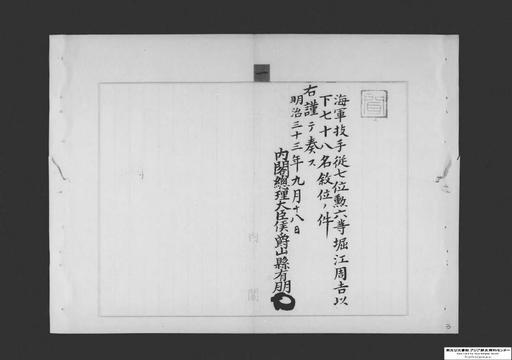 海軍技手従七位勲六等堀江周吉以
下七十八名敘位ノ件
右謹テ奏ス
明治三十三年九月十八日
内閣總理大臣侯爵山縣有朋
一
内閣